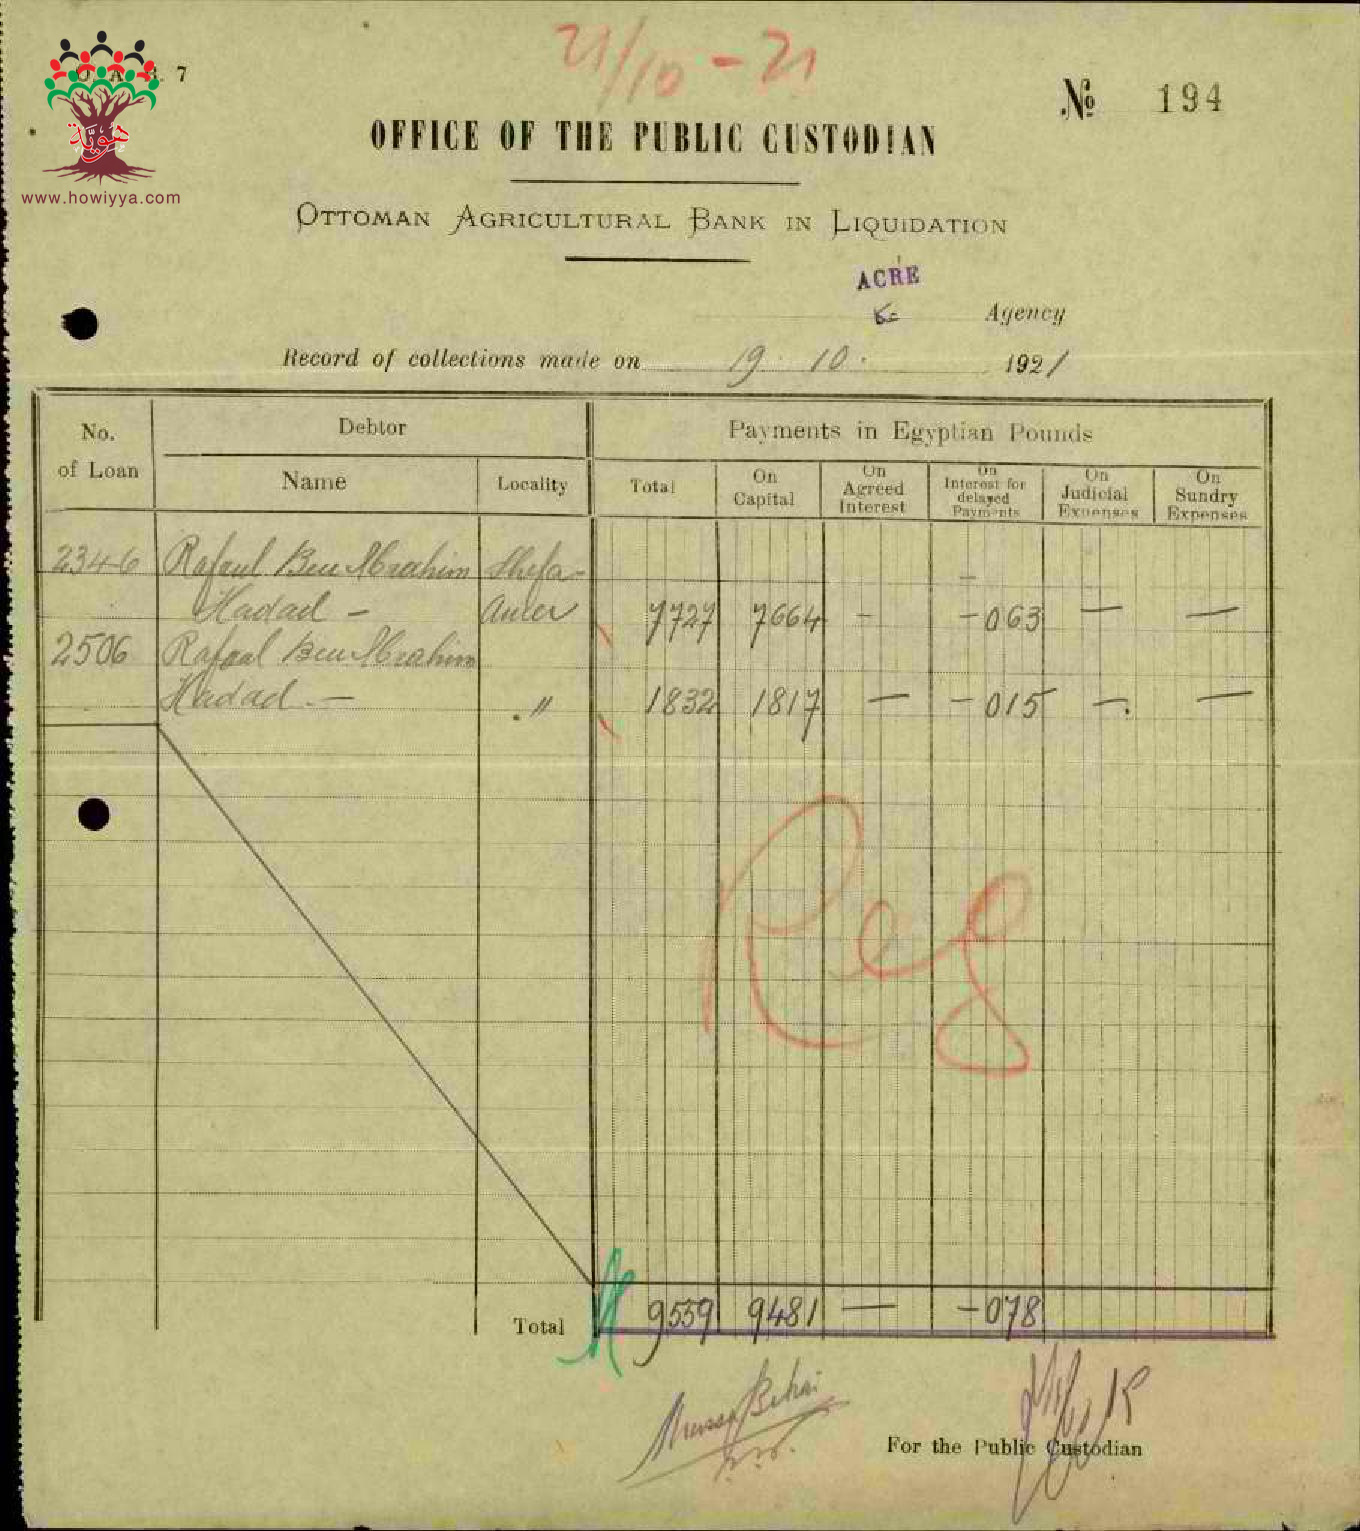 21/10-21
O. A. B. 7
هويّة
www.howiyya.com
№ 194
OFFICE OF THE PUBLIC CUSTODIAN
OTTOMAN AGRICULTURAL BANK IN LIQUIDATION
ACRE
Agency
Record of collections made on 19. 10. 1921
No. of Loan
Debtor
Payments in Egyptian Pounds
Name
Locality
Total
On Capital
On Agreed Interest
On Interest for delayed Payments
On Judicial Expenses
On Sundry Expenses
2346 Rafaul Ben Abrahim Shefa-
Hadad — Amer 7727 7664 - -063 — —
2506 Rafaul Ben Abrahim
Hadad — " 1832 1817 — -015 — —
Reg
Total 9559 9481 — -078
For the Public Custodian